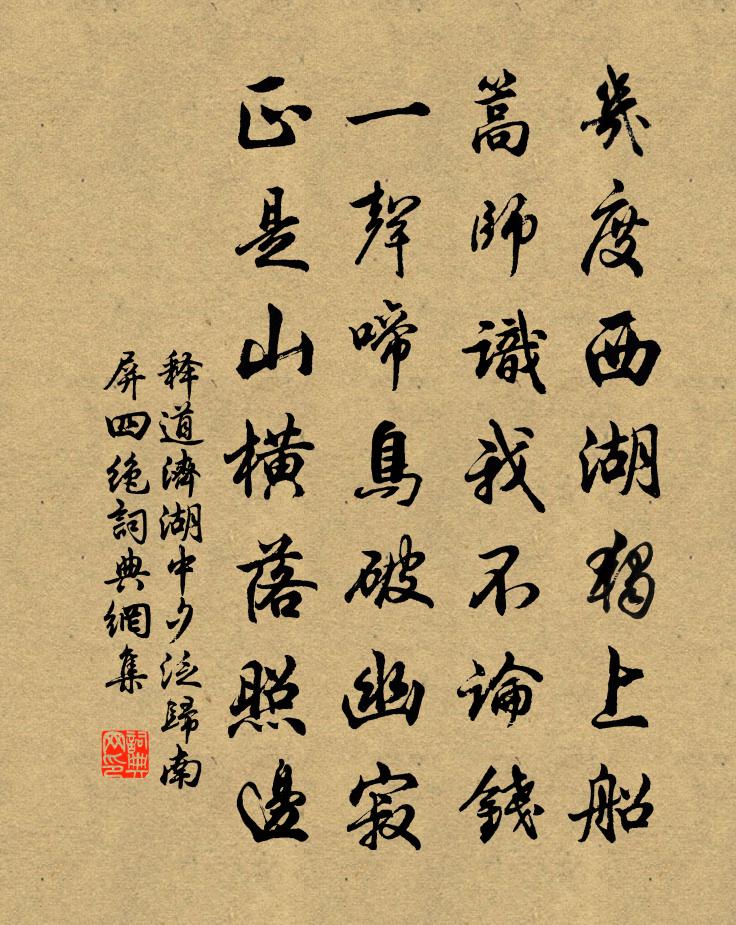 幾度西湖獨上船
篙師識我不論錢
一聲啼鳥破幽寂
正是山橫落照邊
释道濟湖中夕泛歸南
屏四绝詞典網集
詞典
网印